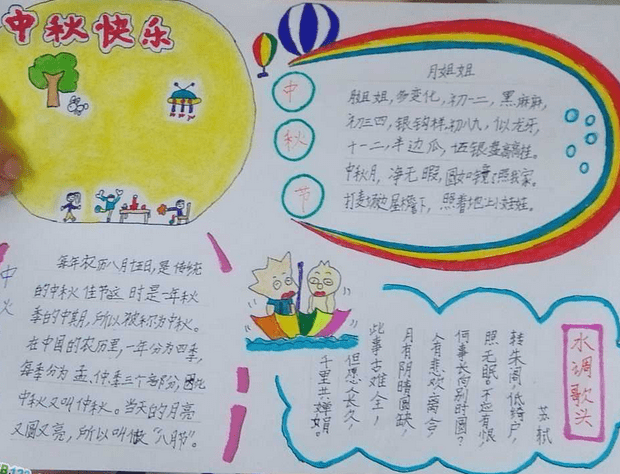 中秋快乐
中
秋
节
月姐姐
月姐姐，多变化，初一二，黑麻麻，
初三四，银钩样，初八九，似龙牙，
十一二，半边瓜，十五银盘高高挂。
中秋月，净无暇，圆如镜子照我家。
打麦场边屋檐下，照着地上小娃娃。
中
火
每年农历八月十五日，是传统
的中秋佳节。这时是一年秋
季的中期，所以被称为中秋。
在中国的农历里，一年分为四季，
每季分为孟、仲、季三个部分，因此
中秋又叫仲秋。当天的月亮
又圆又亮，所以叫做“八月节”。
水调歌头
苏轼
转朱阁，低绮户，
照无眠。不应有恨，
何事长向别时圆？
人有悲欢离合，
月有阴晴圆缺，
此事古难全，
但愿人长久，
千里共婵娟。